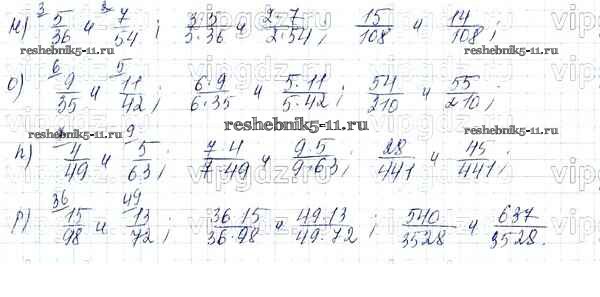 н) 3 5/36 и 2 7/54 ; 3·5/3·36 и 2·7/2·54 ; 15/108 и 14/108 ;
reshebnik5-11.ru
о) 6 9/35 и 5 11/42 ; 6·9/6·35 и 5·11/5·42 ; 54/210 и 55/210 ;
reshebnik5-11.ru
reshebnik5-11.ru
п) 4/49 и 9 5/63 ; 7·4/7·49 и 9·5/9·63 ; 28/441 и 45/441 ;
р) 36 15/98 и 49 13/72 ; 36·15/36·98 и 49·13/49·72 ; 540/3528 и 637/3528.